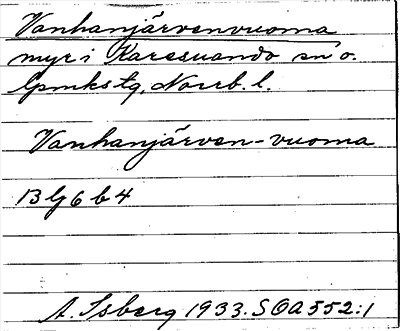 Vanhanjärvenvuoma
myr i Karesuando sn o.
lpmkstg, Norrb. l.
Vanhanjärven-vuoma
A. Isberg 1933. SOA 552:1